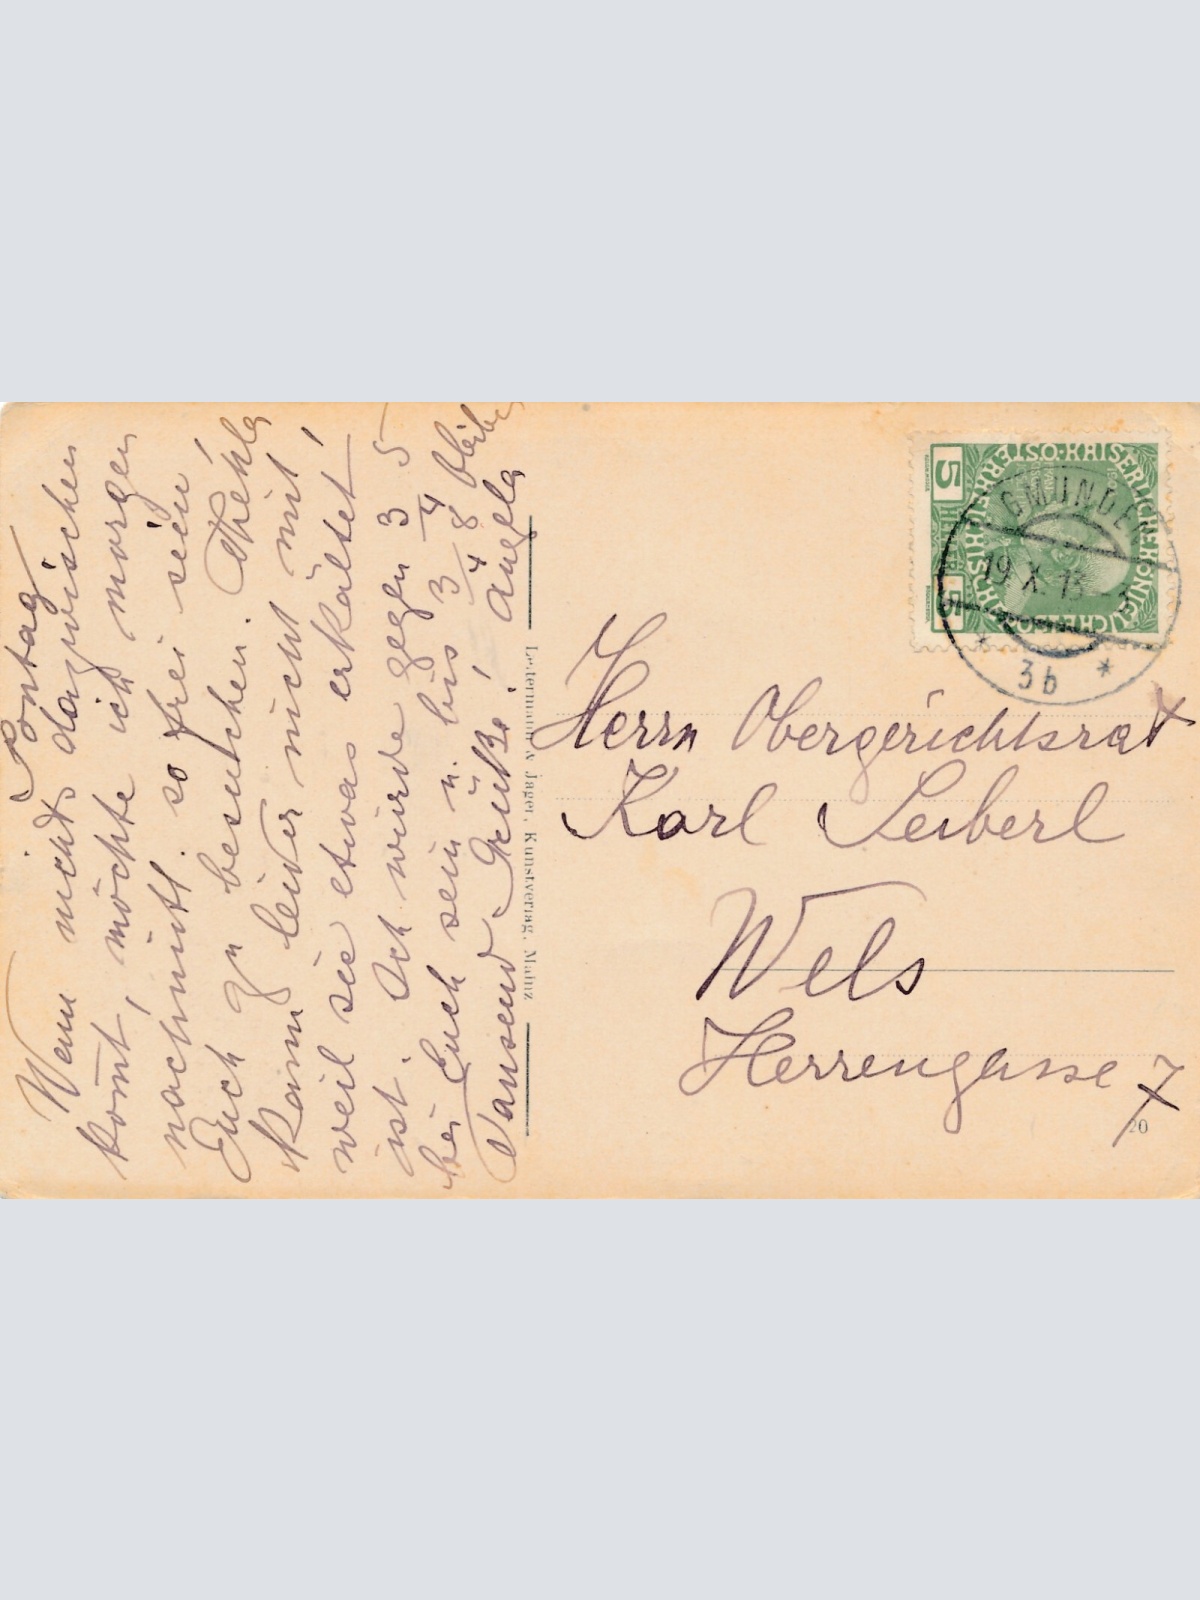 Sontag
Wenn nichts dazwischen
komt, möchte ich morgen
nachmitt. so frei sein
Euch zu besuchen. Thekla
kann leider nicht mit!
weil sie etwas erkältet
ist. Ich würde gegen 3/4 5
bei Euch sein u. bis 3/4 8 bleiben
Tausend Grüße! Angela
& Jäger, Kunstverlag, Mainz
KAISERLICHE KÖNIGLICHE ÖSTERREICHISCHE POST
5 HELLER 5
GMUNDEN
19. X. 13
* 3b *
Herrn Obergerichtsrat
Karl Seiberl
Wels
Herrengasse 7
20